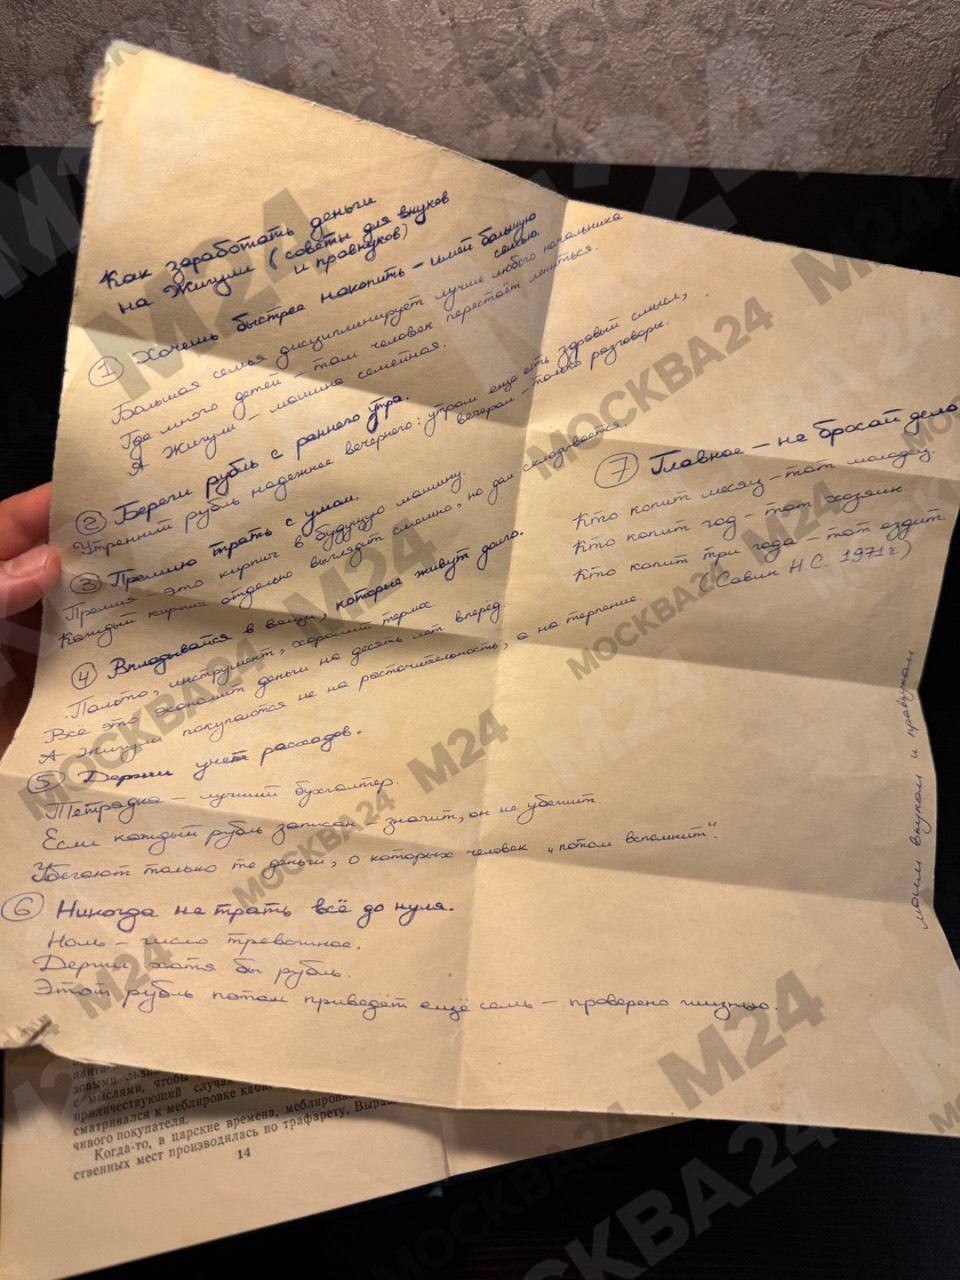 Как заработать деньги
на Жигули (советы для внуков
и правнуков)
① Хочешь быстрее накопить – имей большую
семью.
Большая семья дисциплинирует лучше любого начальника
Где много детей – там человек перестаёт лениться.
А Жигули – машина семейная.
② Береги рубль с раннего утра.
Утренний рубль надежнее вечернего: утром ещё есть здравый смысл,
вечером – только разговоры.
③ Премию трать с умом.
Премия – это кирпич в будущую машину.
Каждый кирпич отдельно выглядит смешно, но дом складывается.
④ Вкладывайся в вещи, которые живут долго.
Пальто, инструмент, хороший термос
Всё это экономит деньги на десять лет вперёд.
А Жигули покупаются не на расточительность, а на терпение.
⑤ Держи учет расходов.
Тетрадка – лучший бухгалтер.
Если каждый рубль записан – значит, он не убежит.
Убегают только те деньги, о которых человек „потом вспомнит".
⑥ Никогда не трать всё до нуля.
Ноль – число тревожное.
Держи хотя бы рубль.
Этот рубль потом приведёт ещё семь – проверено жизнью.
⑦ Главное – не бросай дело
Кто копит месяц – тот молодец.
Кто копит год – тот хозяин
Кто копит три года – тот ездит
(Савин Н.С. 1971г.)
моим внукам и правнукам
с мыслями, чтобы
приличествующий случа
сматривался к меблировке каб
чивого покупателя.
Когда-то, в царские времена, меблировк
ственных мест производилась по трафарету. Выра
14
МОСКВА24
М24